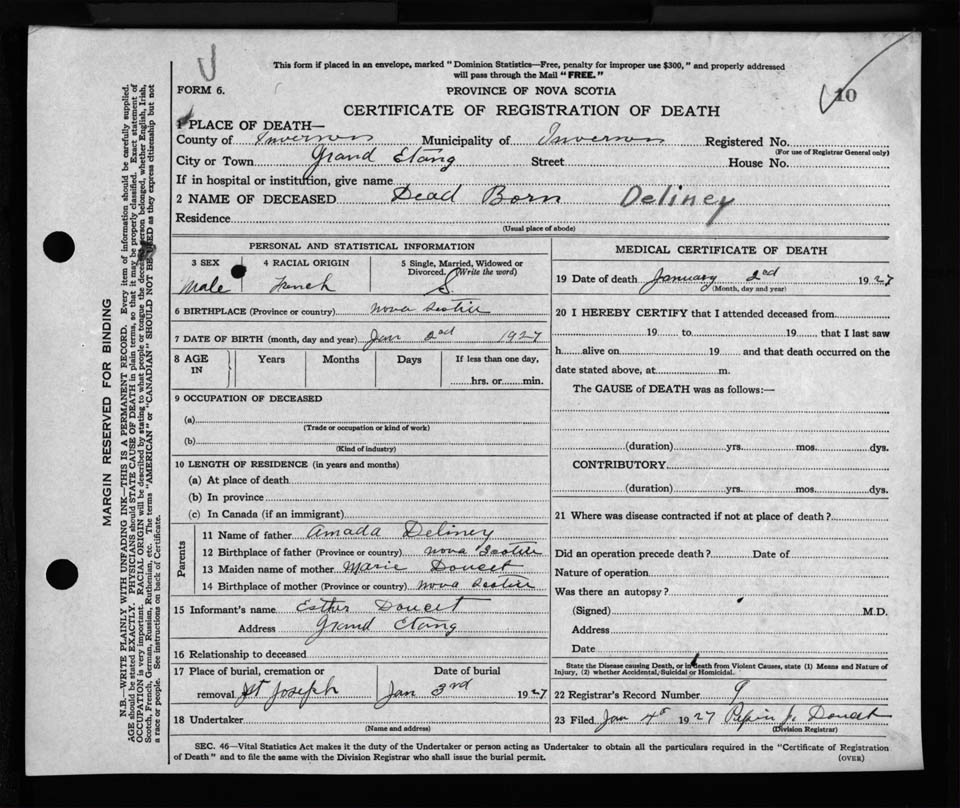 This form if placed in an envelope, marked "Dominion Statistics—Free, penalty for improper use $300," and properly addressed
will pass through the Mail "FREE."
FORM 6.
PROVINCE OF NOVA SCOTIA
10
CERTIFICATE OF REGISTRATION OF DEATH
1 PLACE OF DEATH—
County of Inverness Municipality of Inverness Registered No.
(For use of Registrar General only)
City or Town Grand Etang Street House No.
If in hospital or institution, give name
2 NAME OF DECEASED Dead Born Deliney
Residence
(Usual place of abode)
PERSONAL AND STATISTICAL INFORMATION
3 SEX 4 RACIAL ORIGIN 5 Single, Married, Widowed or
Divorced. (Write the word)
Male French S.
6 BIRTHPLACE (Province or country) Nova Scotia
7 DATE OF BIRTH (month, day and year) Jan 2nd 1927
8 AGE IN Years Months Days If less than one day,
hrs. or min.
9 OCCUPATION OF DECEASED
(a)
(Trade or occupation or kind of work)
(b)
(Kind of industry)
10 LENGTH OF RESIDENCE (in years and months)
(a) At place of death
(b) In province
(c) In Canada (if an immigrant)
Parents
11 Name of father Amada Deliney
12 Birthplace of father (Province or country) Nova Scotia
13 Maiden name of mother Marie Doucet
14 Birthplace of mother (Province or country) Nova Scotia
15 Informant's name Esther Doucet
Address Grand Etang
16 Relationship to deceased
17 Place of burial, cremation or Date of burial
removal St Joseph Jan 3rd 1927
18 Undertaker
(Name and address)
MEDICAL CERTIFICATE OF DEATH
19 Date of death January 2nd 1927
(Month, day and year)
20 I HEREBY CERTIFY that I attended deceased from
19 to 19 that I last saw
h alive on 19 and that death occurred on the
date stated above, at m.
The CAUSE of DEATH was as follows:—
(duration) yrs. mos. dys.
CONTRIBUTORY
(duration) yrs. mos. dys.
21 Where was disease contracted if not at place of death?
Did an operation precede death? Date of
Nature of operation
Was there an autopsy?
(Signed) M.D.
Address
Date
State the Disease causing Death, or in death from Violent Causes, state (1) Means and Nature of
Injury, (2) whether Accidental, Suicidal or Homicidal.
22 Registrar's Record Number 9
23 Filed Jan 4th 1927 J. Doucet
(Division Registrar)
SEC. 46—Vital Statistics Act makes it the duty of the Undertaker or person acting as Undertaker to obtain all the particulars required in the "Certificate of Registration
of Death" and to file the same with the Division Registrar who shall issue the burial permit.
(OVER)
MARGIN RESERVED FOR BINDING
N.B.—WRITE PLAINLY WITH UNFADING INK—THIS IS A PERMANENT RECORD. Every item of information should be carefully supplied.
AGE should be stated EXACTLY. PHYSICIANS should STATE CAUSE OF DEATH in plain terms, so that it may be properly classified. Exact statement of
OCCUPATION is very important. RACIAL ORIGIN will be described by stating to what people or tongue the deceased person belonged, whether English, Irish,
Scotch, French, German, Russian, Ruthenian, etc. The terms "AMERICAN" or "CANADIAN" SHOULD NOT BE USED as they express citizenship but not
a race or people. See instructions on back of Certificate.